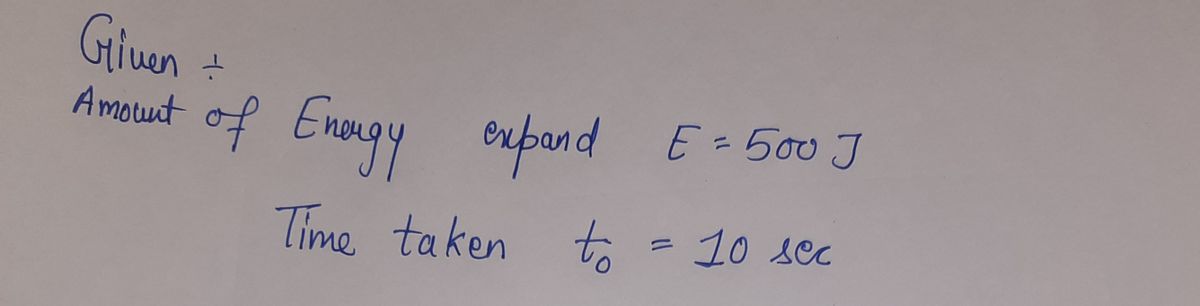 Given ÷
Amount of Energy expand E = 500 J
Time taken t₀ = 10 sec